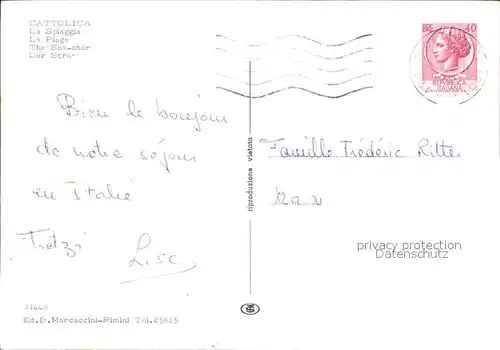 CATTOLICA
La Spiaggia
La Plage
The Sea-shor
Der Stran
LIRE 40
REPVBBLICA
ITALIANA
Bien le bonjour
de notre séjour
en Italie
Lise
riproduzione vietata
Famille Frédéric Ritter
privacy protection
Datenschutz
Ed.D. Marcaccini-Rimini Tel.25815